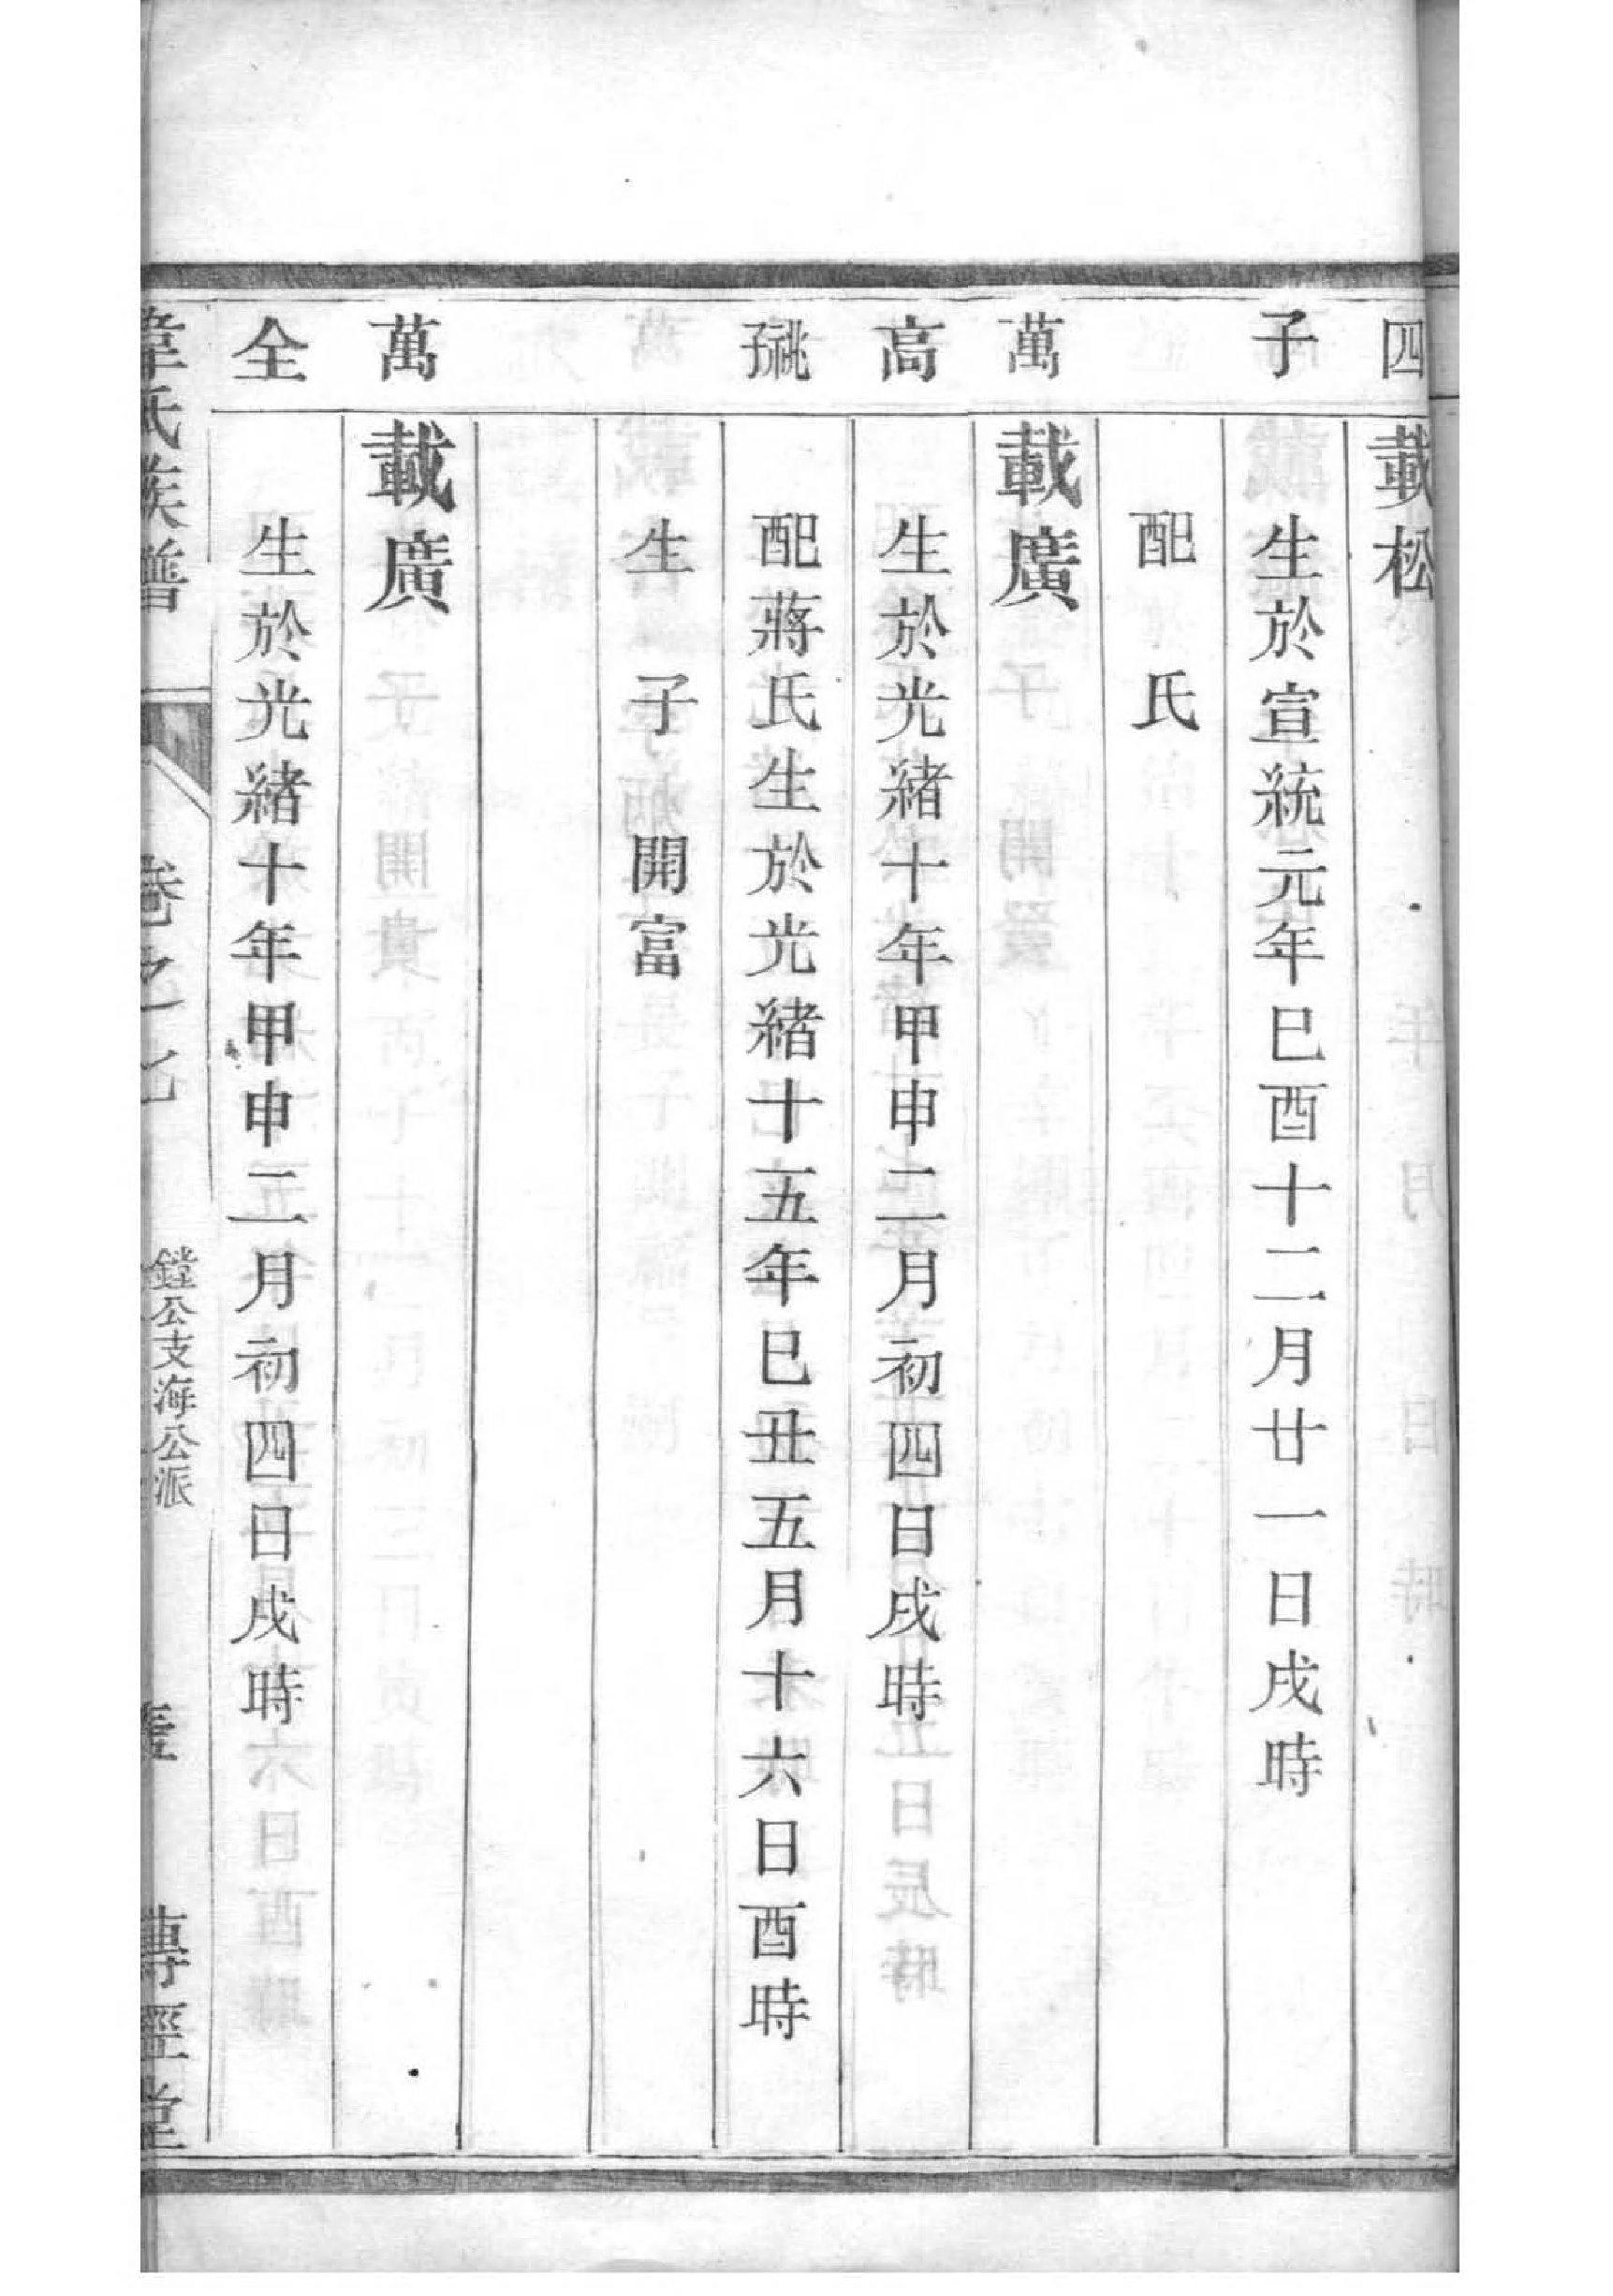 四 載松
子 生於宣統元年巳酉十二月廿一日戌時
配 氏
萬 載廣
高 生於光緒十年甲申二月初四日戌時
祧 配蔣氏生於光緒十五年巳丑五月十六日酉時
生 子 開富
萬 載廣
全 生於光緒十年甲申二月初四日戌時
韋氏族譜 卷之七 鏜公支海公派 傳經堂